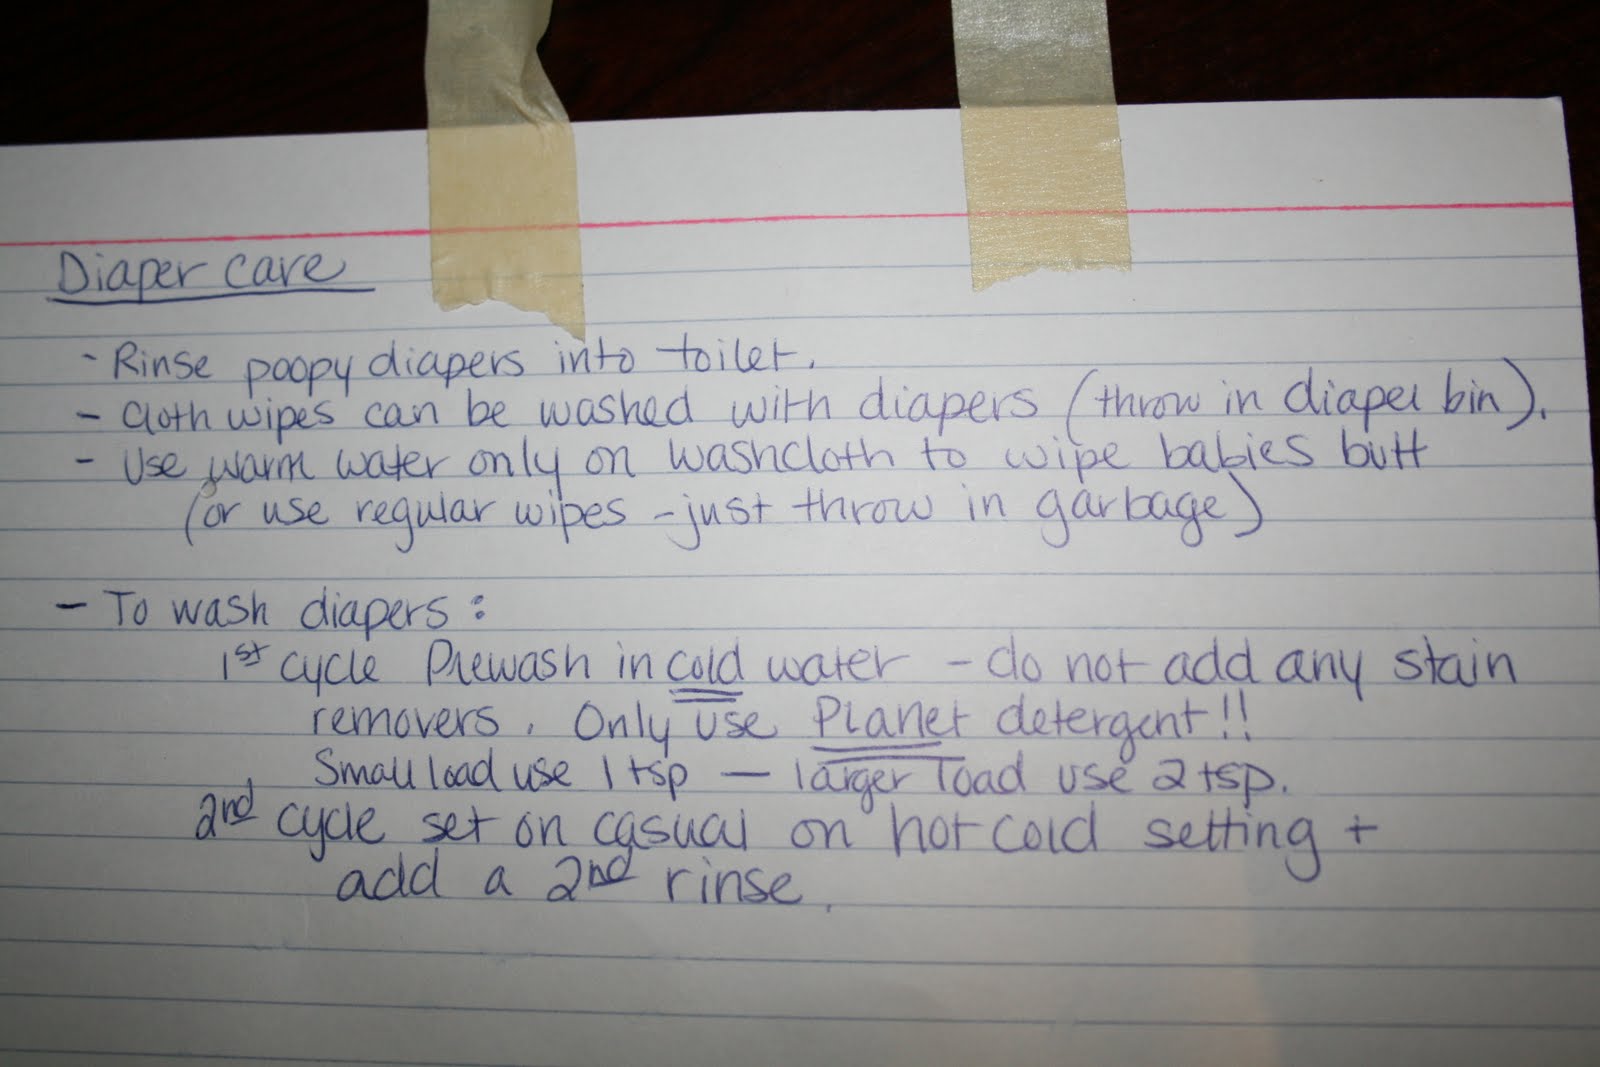 Diaper care
- Rinse poopy diapers into toilet.
- Cloth wipes can be washed with diapers (throw in diaper bin).
- Use warm water only on washcloth to wipe babies butt
(or use regular wipes - just throw in garbage)
- To wash diapers:
1st cycle Prewash in cold water - do not add any stain
removers. Only use Planet detergent!!
Small load use 1 tsp — larger load use 2 tsp.
2nd cycle set on casual on hot cold setting +
add a 2nd rinse.